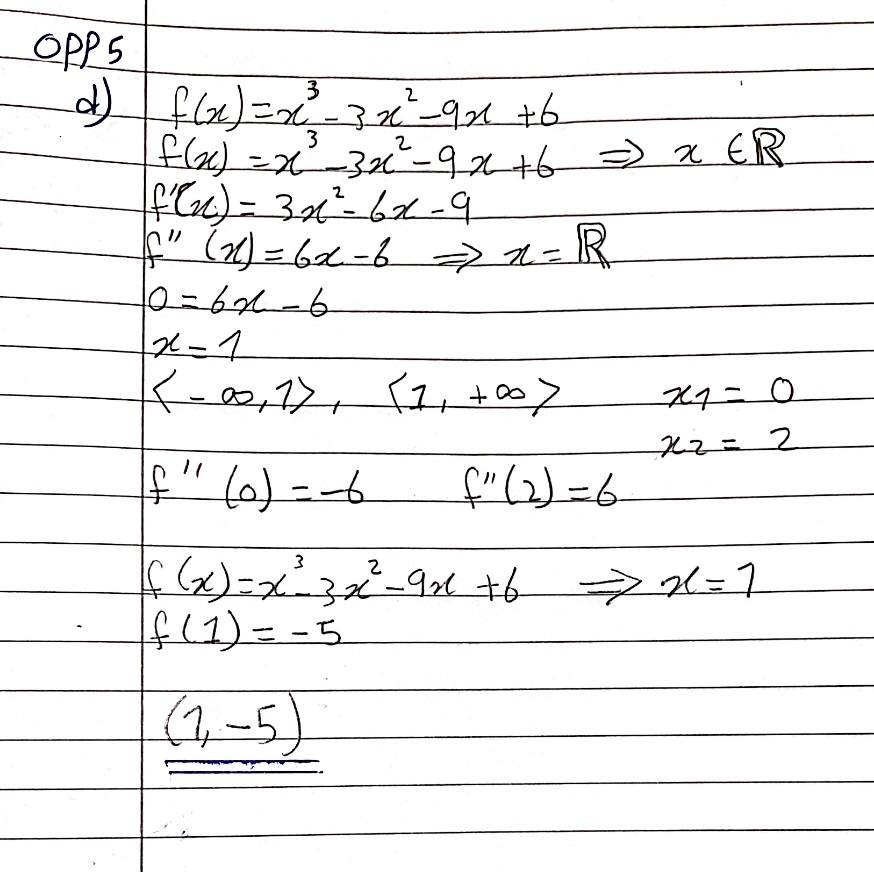 OPP 5
d) f(x) = x³ - 3x² - 9x + 6
f(x) = x³ - 3x² - 9x + 6 ⇒ x ∈ ℝ
f'(x) = 3x² - 6x - 9
f'' (x) = 6x - 6 ⇒ x = ℝ
0 = 6x - 6
x = 1
< - ∞, 1>, <1, +∞> x1 = 0
x2 = 2
f'' (0) = -6 f'' (2) = 6
f (x) = x³ - 3x² - 9x + 6 ⇒ x = 1
f (1) = - 5
(1, -5)